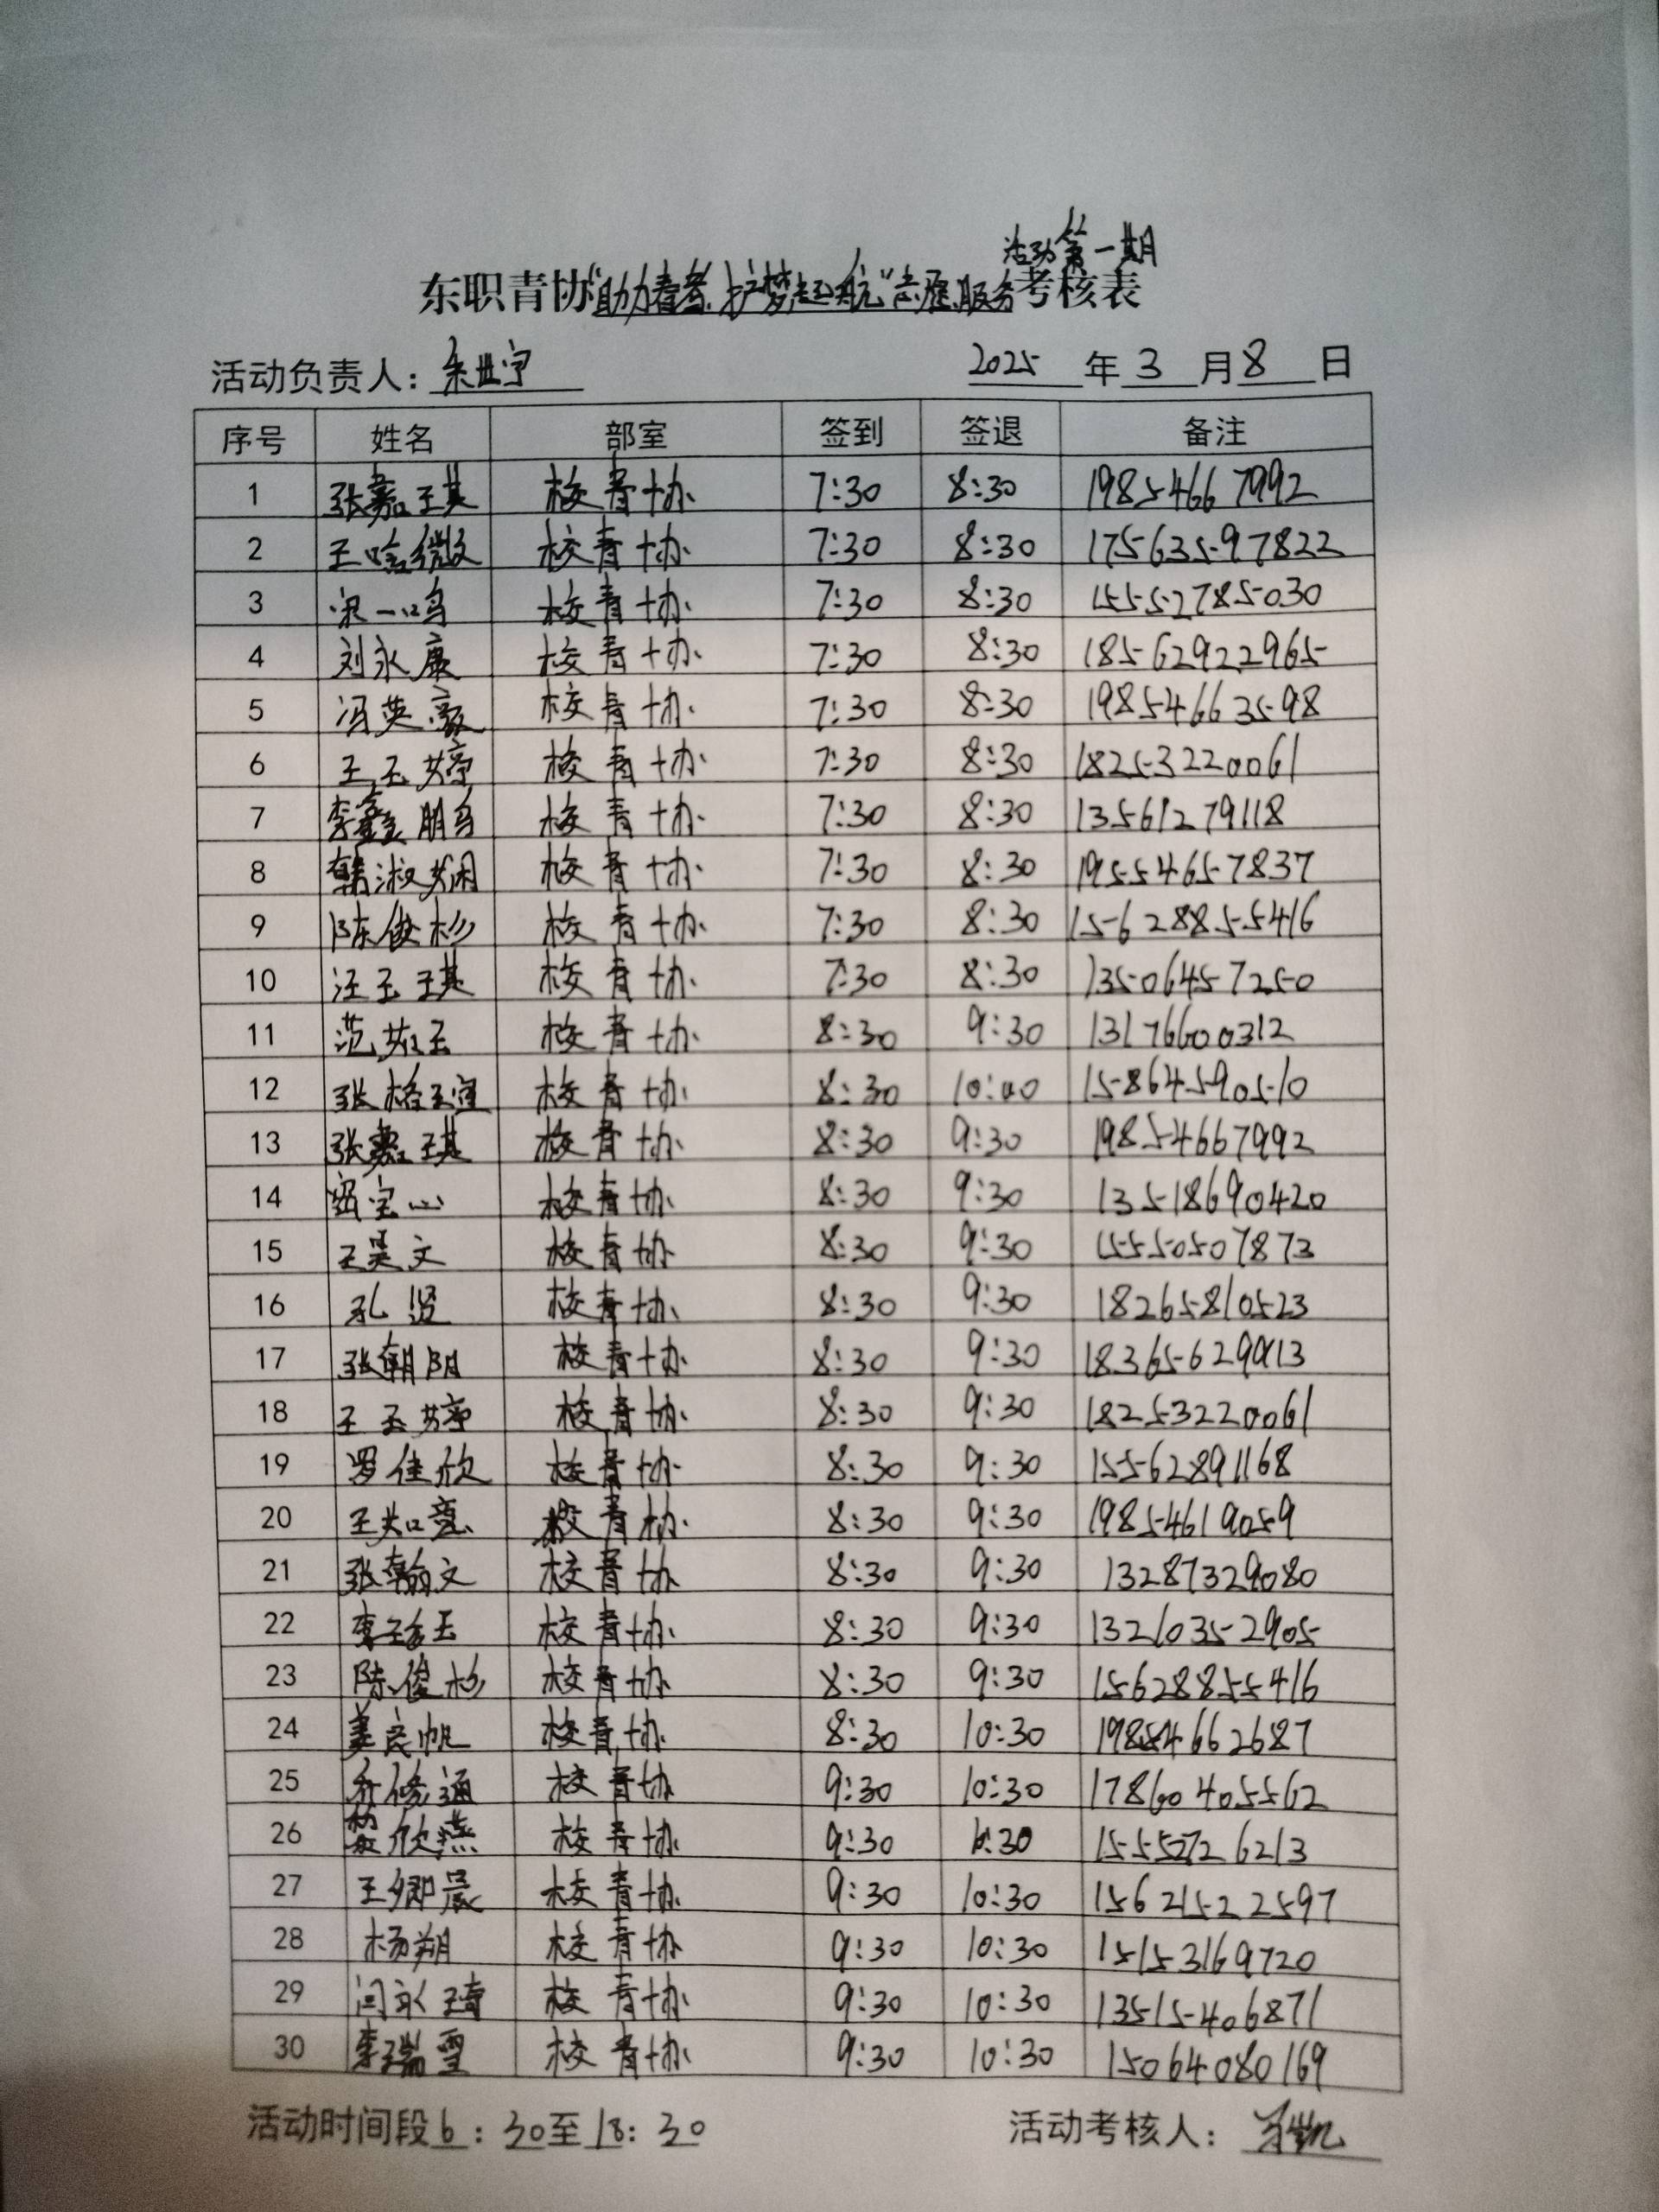 活动第一期
东职青协“助力春考、护梦起航”志愿服务考核表
活动负责人：朱世宇 2025年3月8日
序号 姓名 部室 签到 签退 备注
1 张嘉琪 校青协 7:30 8:30 19854667992
2 王晗微 校青协 7:30 8:30 17563597822
3 宋一鸣 校青协 7:30 8:30 15552785030
4 刘永康 校青协 7:30 8:30 18562922965
5 冯英豪 校青协 7:30 8:30 19854663598
6 王玉婷 校青协 7:30 8:30 18253220061
7 李鑫鹏 校青协 7:30 8:30 13561279118
8 韩淑娴 校青协 7:30 8:30 19554657837
9 陈俊杉 校青协 7:30 8:30 15628855416
10 汪玉琪 校青协 7:30 8:30 13506457250
11 范如玉 校青协 8:30 9:30 13176600312
12 张格瑄 校青协 8:30 10:00 15864590510
13 张嘉琪 校青协 8:30 9:30 19854667992
14 宝心 校青协 8:30 9:30 13518690420
15 王昊文 校青协 8:30 9:30 15550507873
16 孔贤 校青协 8:30 9:30 18265810523
17 张朝阳 校青协 8:30 9:30 18365629913
18 王玉婷 校青协 8:30 9:30 18253220061
19 罗佳欣 校青协 8:30 9:30 15562891168
20 王如意 校青协 8:30 9:30 19854619059
21 张翰文 校青协 8:30 9:30 13287329080
22 李珍玉 校青协 8:30 9:30 13210352905
23 陈俊杉 校青协 8:30 9:30 15628855416
24 姜良帆 校青协 8:30 10:30 19854662687
25 乔修通 校青协 9:30 10:30 17860405562
26 黎欣燕 校青协 9:30 10:30 15552726213
27 王卿晨 校青协 9:30 10:30 15621522597
28 杨朔 校青协 9:30 10:30 15153169720
29 闫永琦 校青协 9:30 10:30 13515406871
30 李瑞雪 校青协 9:30 10:30 15064080169
活动时间段6：30至18：30 活动考核人：